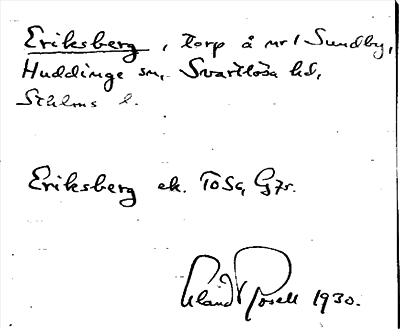 Eriksberg, torp å nr 1 Sundby,
Huddinge sn, Svartlösa hd,
Sthlms l.
Eriksberg ek. ToSa, G7r.
Erland Rosell 1930.